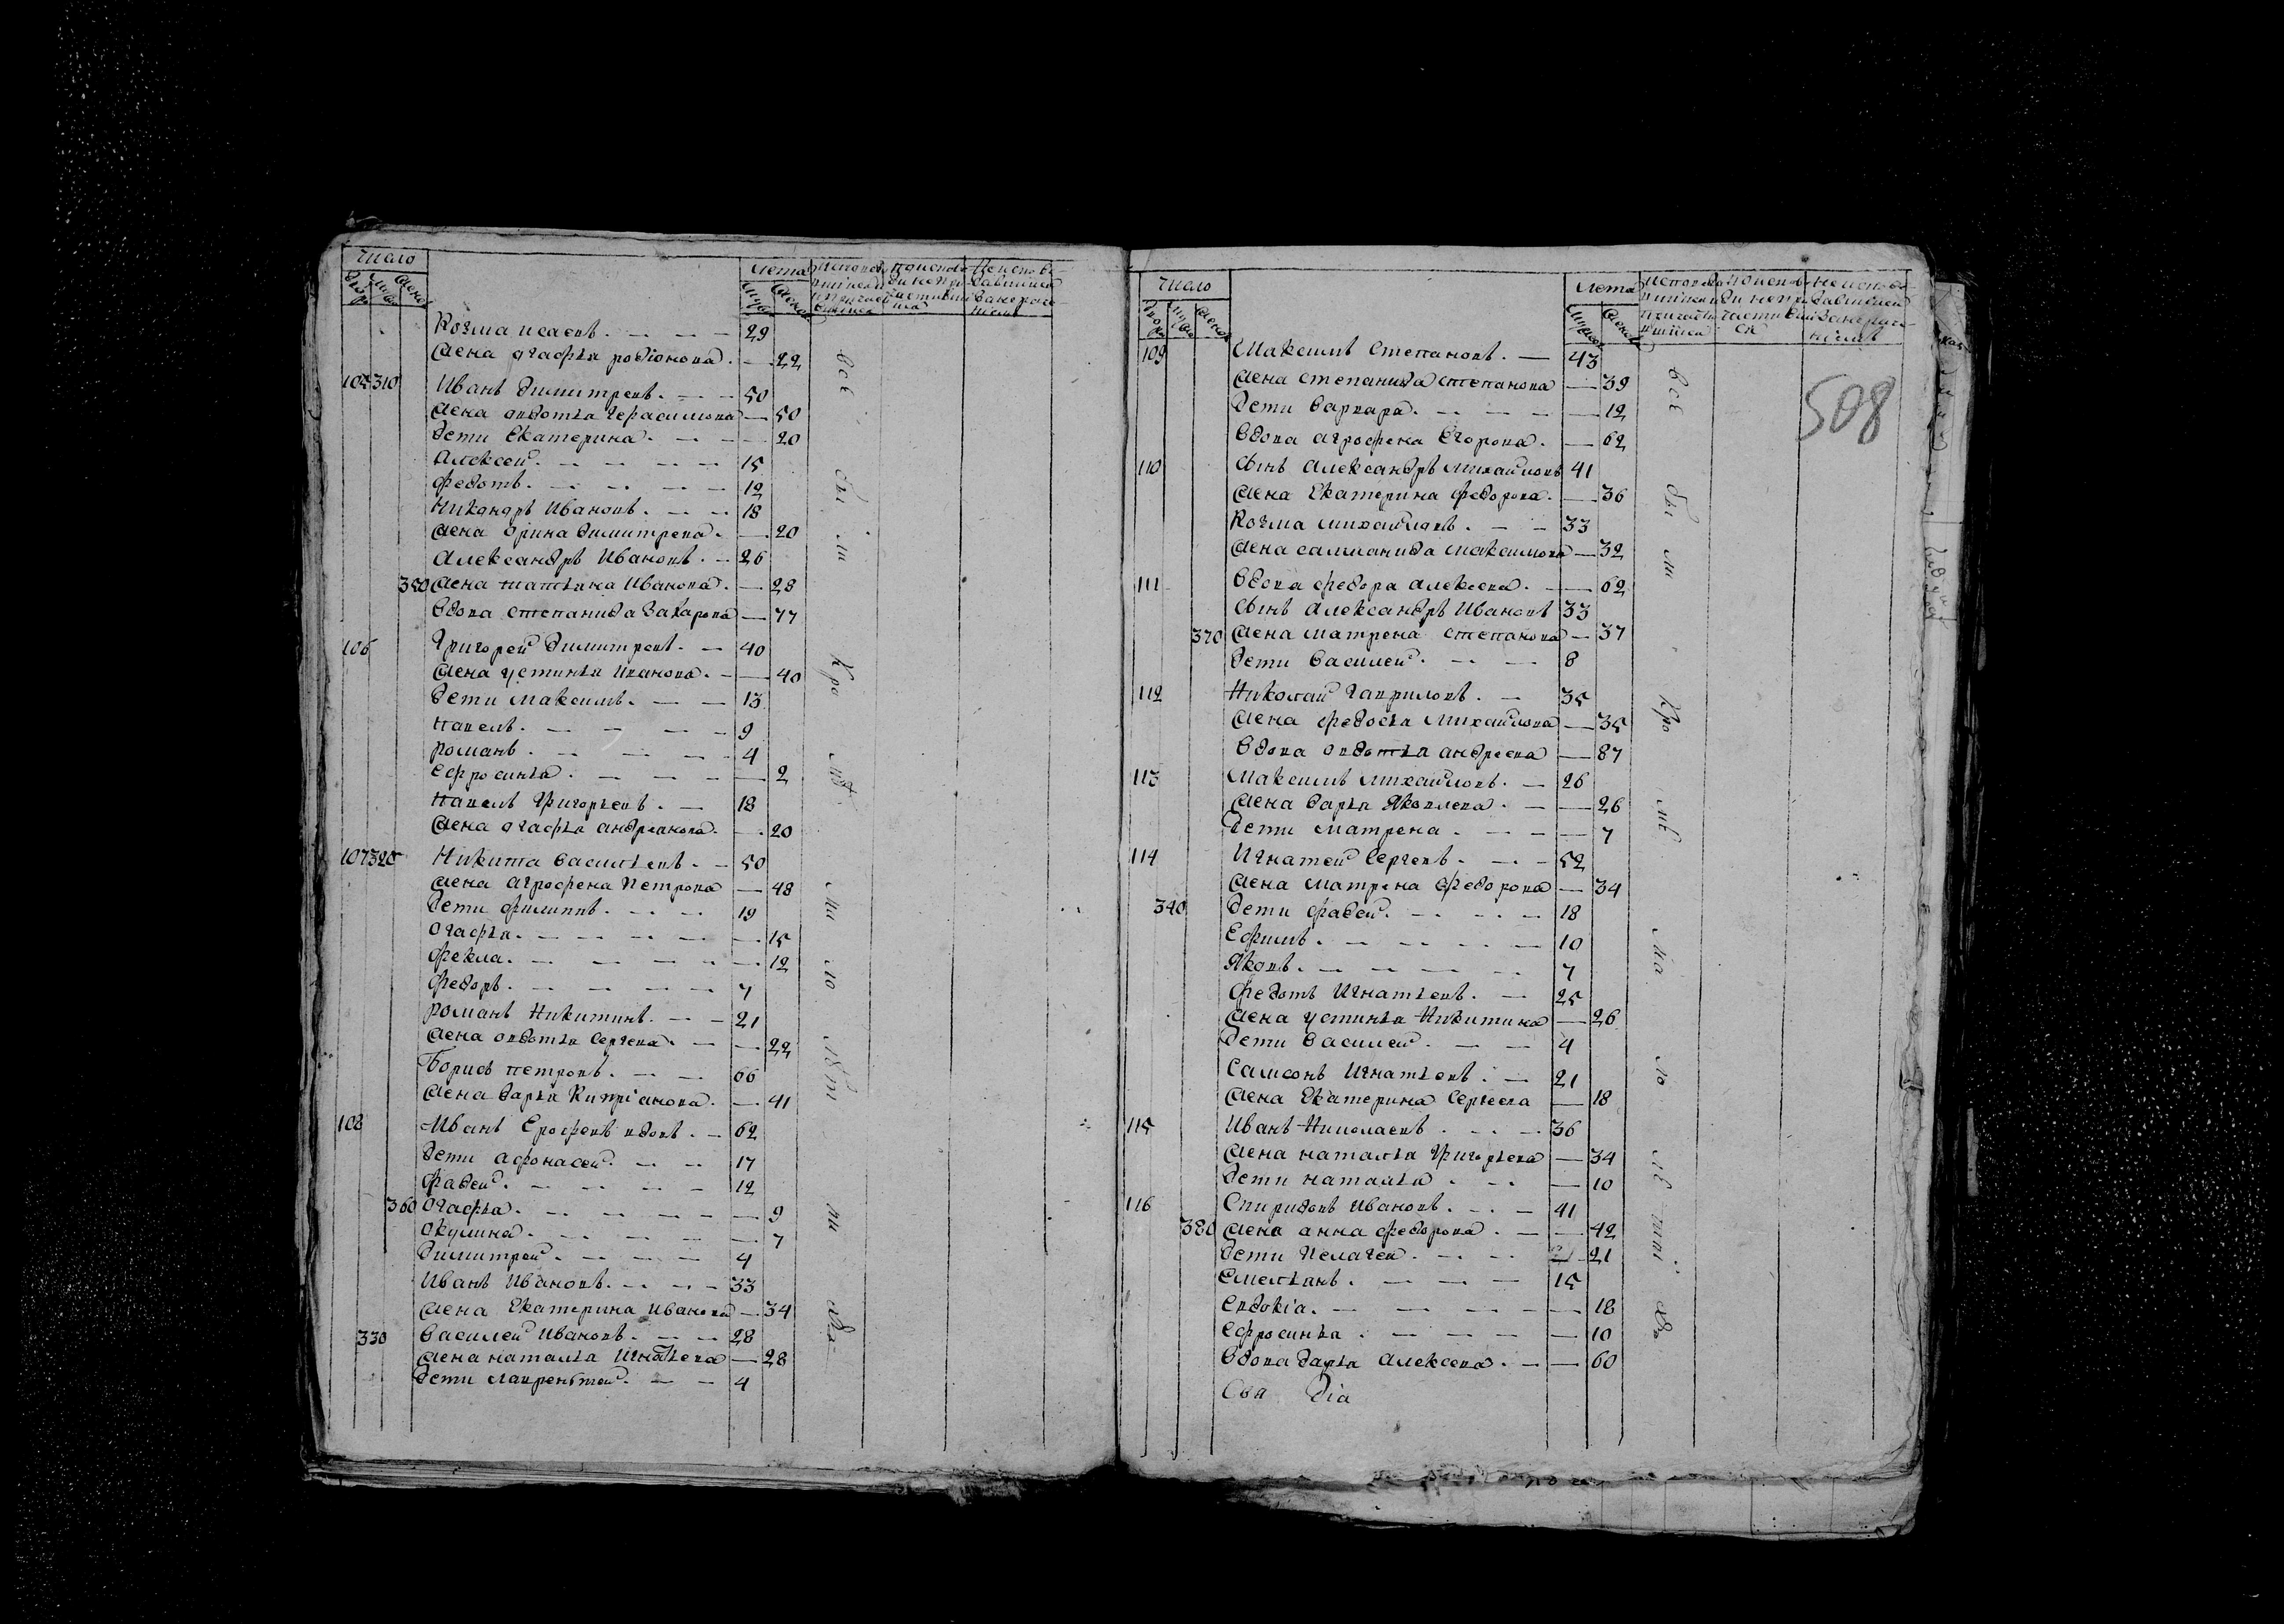 Число
Лета
Козма исаевъ. 29
жена агафья родіонова. 22
105 310 Иванъ димитревъ. 50
жена авдотья герасимова 50
дети Екатерина. 20
Алексей. 15
федотъ. 12
Никандръ Ивановъ. 18
жена орина димитрева. 20
Александръ Ивановъ. 26
350 жена татьяна Иванова. 28
вдова степанида Захарова 77
106 Григорей димитревъ. 40
жена устинья иванова. 40
дети максимъ. 13
павелъ. 9
романъ. 4
ефросинья. 2
павелъ Григорьевъ. 18
жена агафья андреянова. 20
107 320 Никита васильевъ. 50
жена агрофена Петрова 48
дети филиппъ. 19
огафья. 15
фекла. 12
федоръ. 7
романъ Никитинъ. 21
жена овдотья сергева. 22
Борисъ петровъ. 66
жена дарья Кипріанова. 41
108 Иванъ Ерофевъ вдовъ. 62
дети афонасей. 17
фадей. 12
360 огафья. 9
окулина. 7
димитрей. 4
Иванъ Ивановъ. 33
жена Екатерина иванова 34
330 василей Ивановъ. 28
жена наталья Игнатьева 28
дети лаврентей. 4
Число
Лета
508
109 Максимъ Степановъ. 43
жена степанида степанова 39
дети варвара. 12
вдова агрофена Егорова. 62
110 сынъ александръ михайловъ 41
жена Екатерина федорова. 36
Козма михайловъ. 33
жена саламанида максимова 32
111 вдова федора алексева. 62
сынъ александръ Ивановъ 33
370 жена матрена степанова 37
дети василей. 8
112 Николай гавриловъ. 35
жена федосья михайлова 35
вдова овдотья андреева 87
113 Максимъ михайловъ. 26
жена дарья Яковлева. 26
дети матрена. 7
114 Игнатей сергевъ. 52
жена матрена федорова 34
340 дети фадей. 18
Ефимъ. 10
Яковъ. 7
федотъ Игнатьевъ. 25
жена устинья Никитина 26
дети василей. 4
Самсонъ Игнатьевъ. 21
жена Екатерина сергеева 18
115 Иванъ Николаевъ. 36
жена наталья Григорьева 34
дети наталья. 10
116 Спиридонъ Ивановъ. 41
380 жена анна федорова. 42
дети Пелагея. 21
емельянъ. 15
евдокіа. 18
ефросинья. 10
вдова дарья алексева. 60